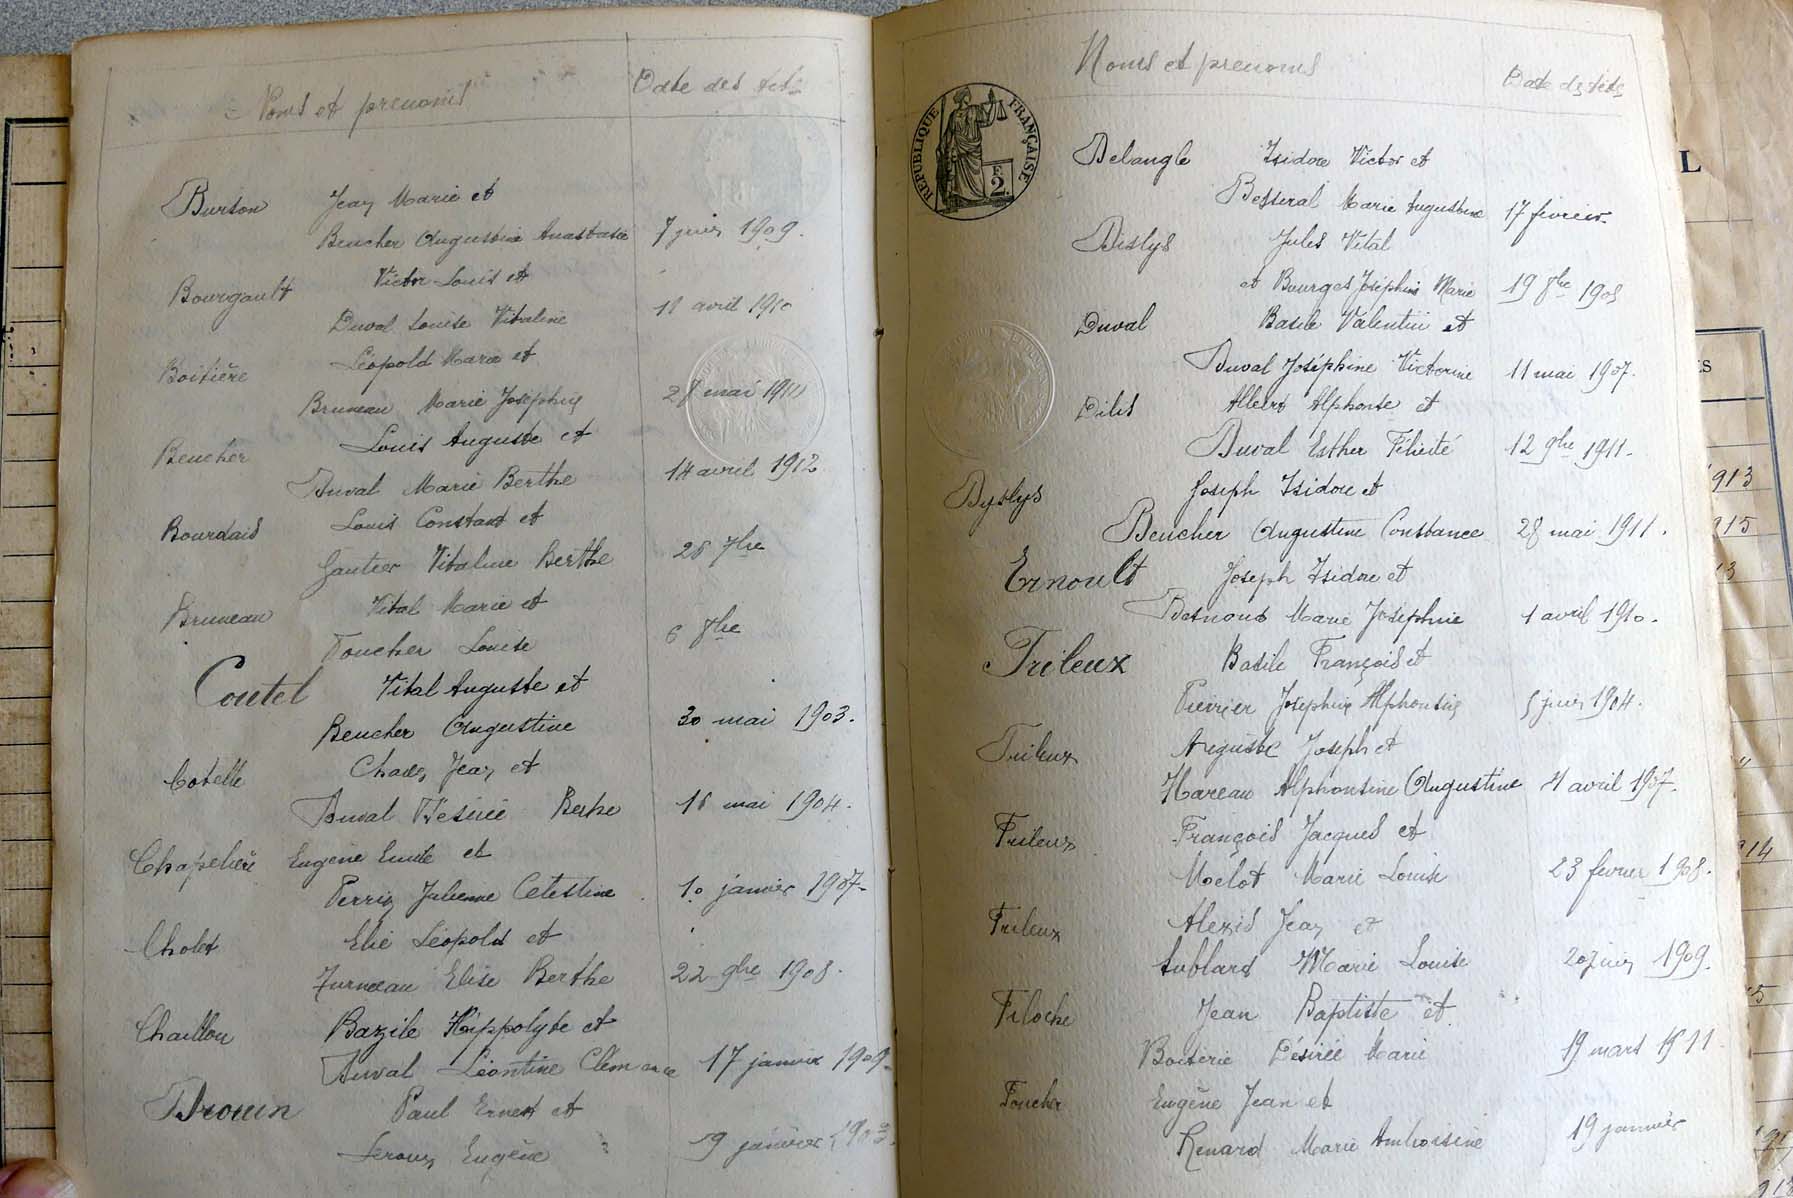 Noms et prenoms Date des
Burson Jean Marie et
Beucher Augustine Anastasie 7 juin 1909.
Bourgault Victor Louis et
Duval Louise Vitaline 11 avril 1910
Boitière Léopold Marie et
Bruneau Marie Joséphine 28 mai 1911
Beucher Louis Auguste et
Duval Marie Berthe 14 avril 1912
Bourdais Louis Constant et
Gautier Vitaline Berthe 28 7bre
Bruneau Vital Marie et
Foucher Louise 6 8bre
Coutel Vital Auguste et
Beucher Augustine 30 mai 1903.
Cotelle Charles Jean et
Duval Désirée Berthe 18 mai 1904.
Chapelière Eugène Emile et
Perrin Julienne Célestine 10 janvier 1907-
Cholet Elie Léopold et
Furneau Elise Berthe 22 9bre 1908.
Chaillou Bazile Hippolyte et
Duval Léontine Clémence 17 janvier 1909-
Drouin Paul Ernest et
Leroux Eugénie 9 janvier 1903.
Noms et prenoms Date des
REPUBLIQUE FRANÇAISE
F.
2.
Delangle Isidore Victor et
Besseral Marie Augustine 17 février
Dislys Jules Vital
et Bourges Joséphine Marie 19 8bre
Duval Basile Valentin et
Duval Joséphine Victorine 11 mai 1907.
Alphonse et
Duval Esther Félicité 12 9bre 1911.
Dyslys Joseph Isidore et
Beucher Augustine Constance 28 mai 1911.
Ernoult Joseph Isidore et
Besnoud Marie Joséphine 1 avril 1910.
Frileux Basile François et
Joséphine Alphonsine 5 juin 1904.
Frileux Auguste Joseph et
Hareau Alphonsine Augustine 4 avril 1907.
Frileux François Jacques et
Mélot Marie Louise 23 fevrier 1908.
Frileux Alexis Jean et
Marie Louise 20 juin 1909.
Filoche Jean Baptiste et
Boiterie Désirée Marie 19 mars 1911.
Foucher Eugène Jean et
Renard Marie Ambroisine 19 janvier
L
913
915
13
914